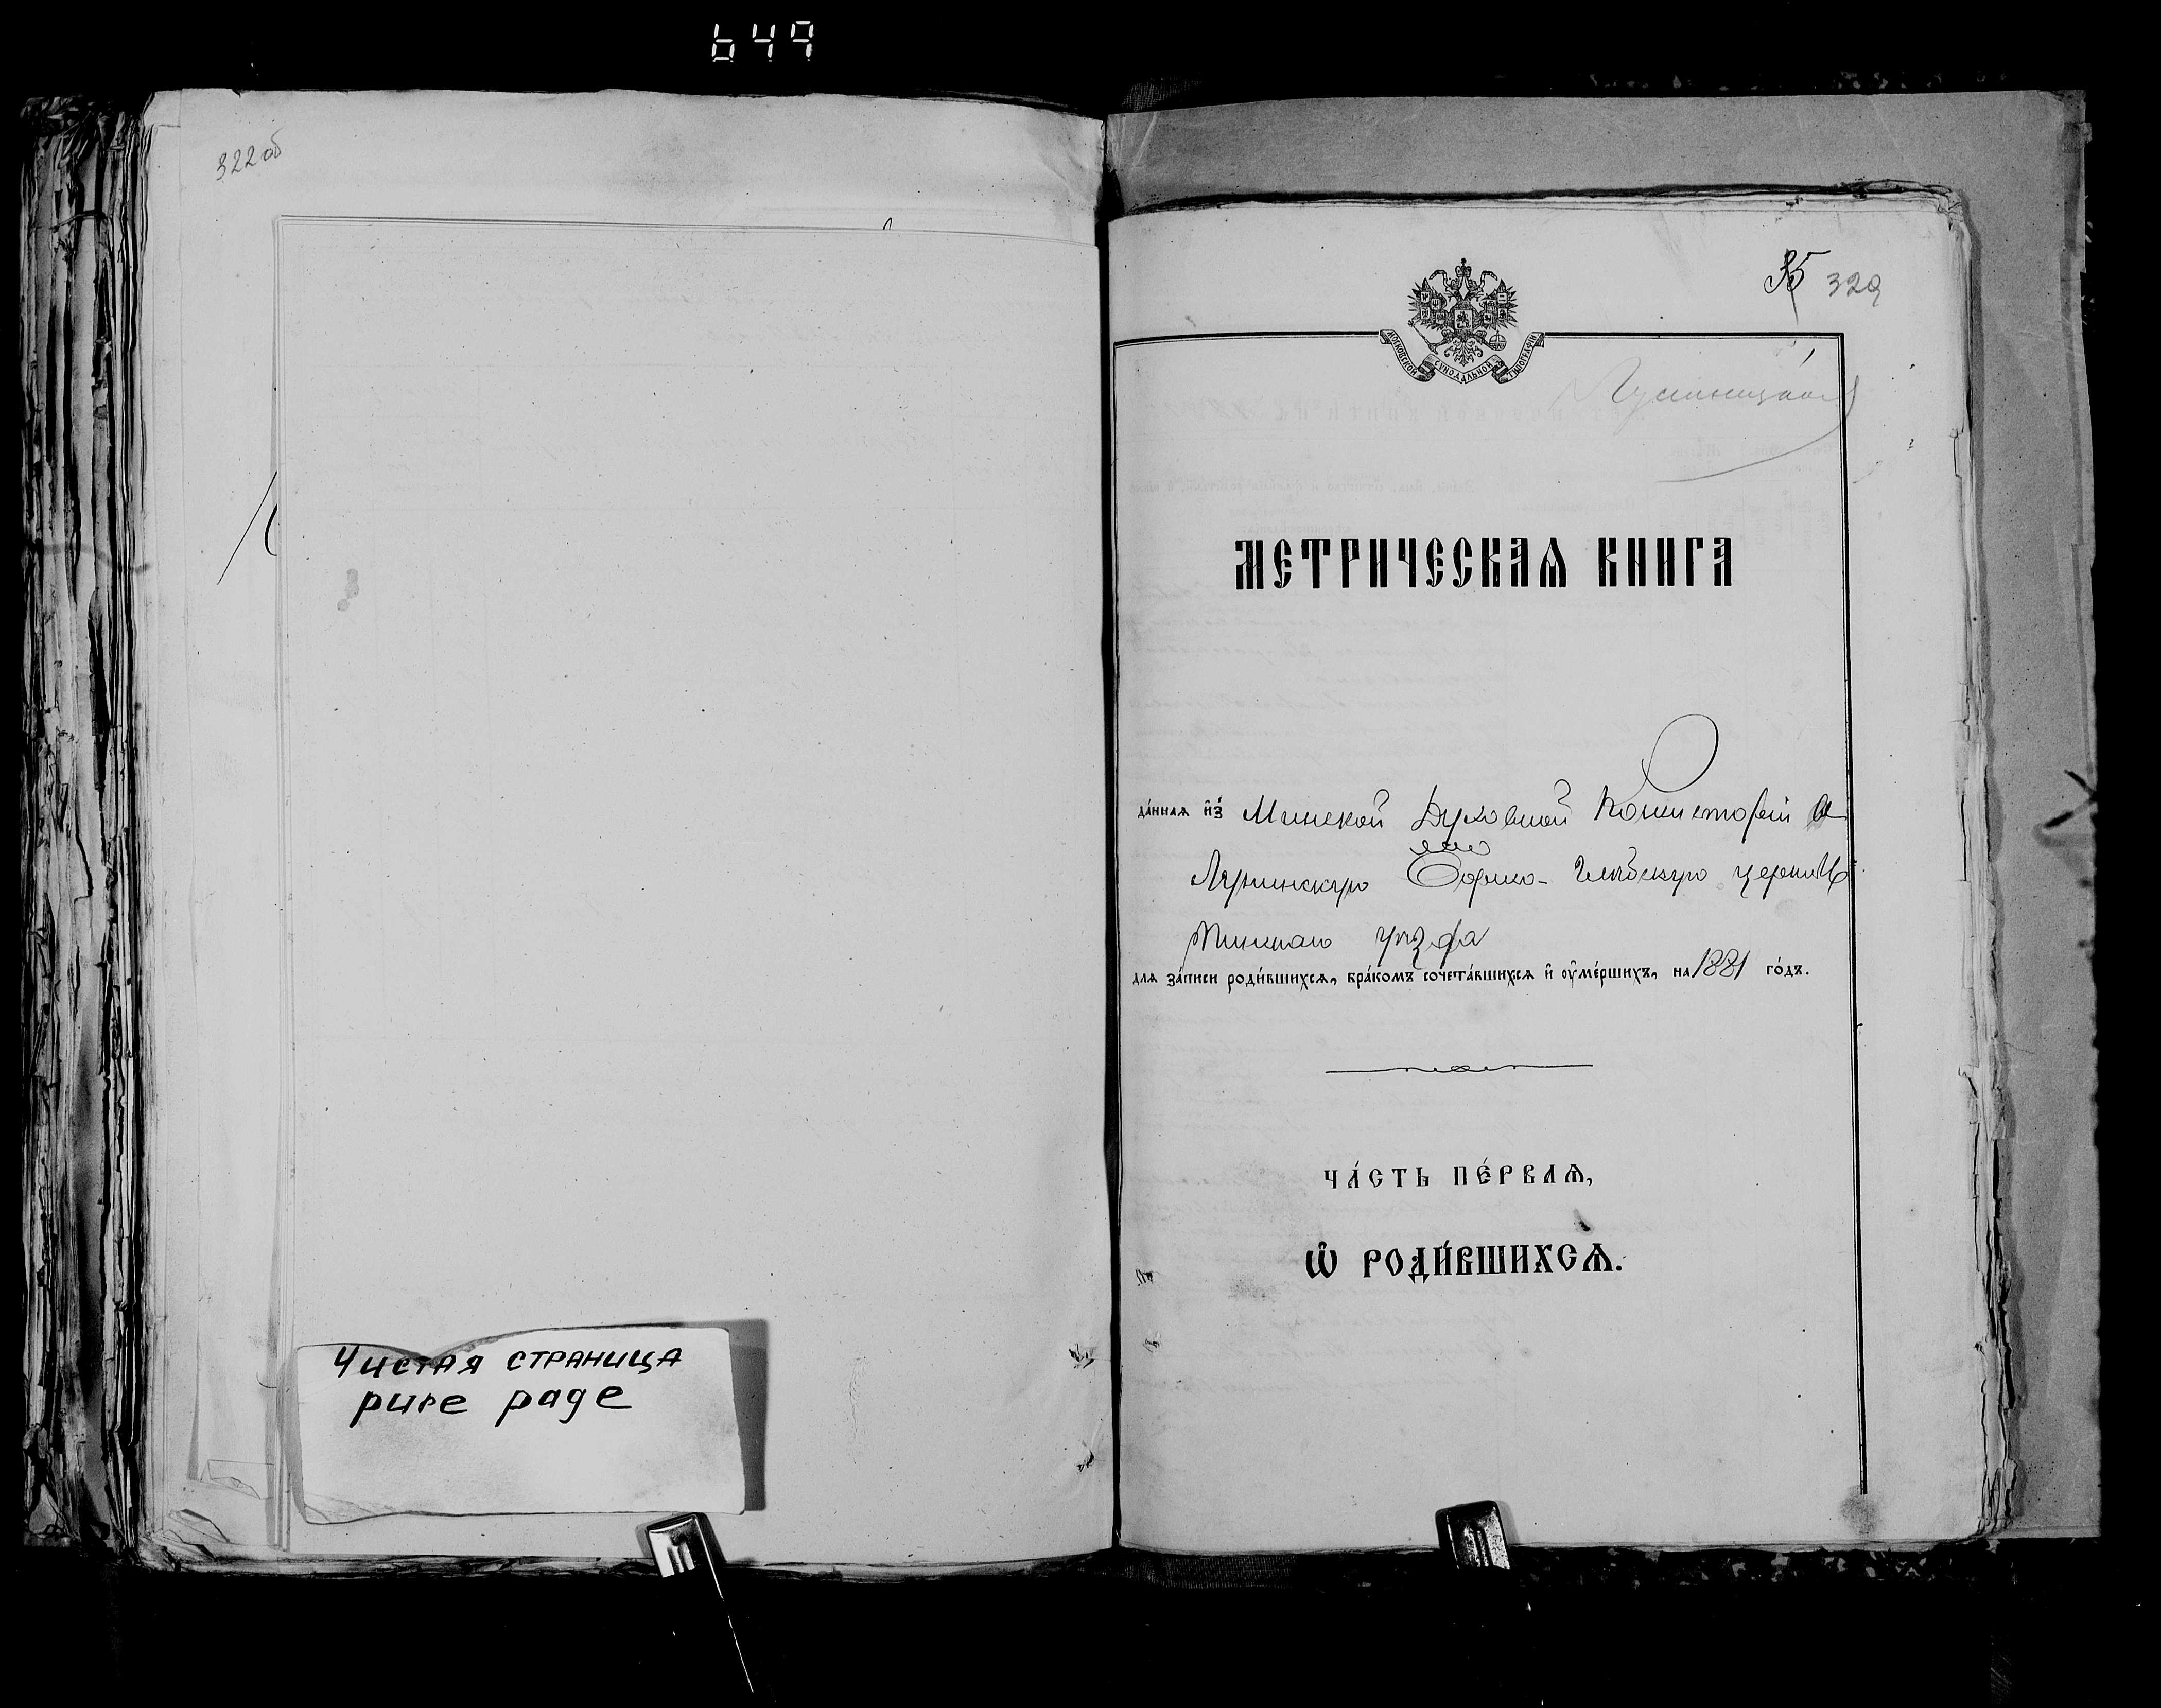 649
322 об
Чистая страница
pure page
35 323
МОСКОВСКОЙ СѴНОДАЛЬНОЙ ТИПОГРАФІИ
МЕТРИЧЕСКАѦ КНИГА
да́ннаѧ и҆з̾ Минской Духовной Консисторіи въ
Лунинскую Борисо-Глѣбскую церковь
Пинскаго уѣзда
для за́писи роди́вшихсѧ, бра́комъ сочета́вшихсѧ и҆ ᲂу҆ме́ршихъ, на 1881 го́дъ.
ЧА́СТЬ ПЕ́РВАѦ,
Ѡ҆ РОДИ́ВШИХСѦ.